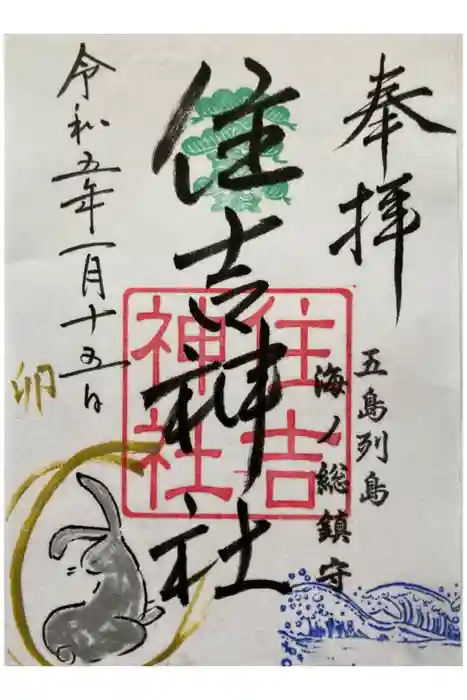 奉拝
五島列島
海ノ総鎮守
住吉神社
住吉
神社
令和五年一月十五日
卯